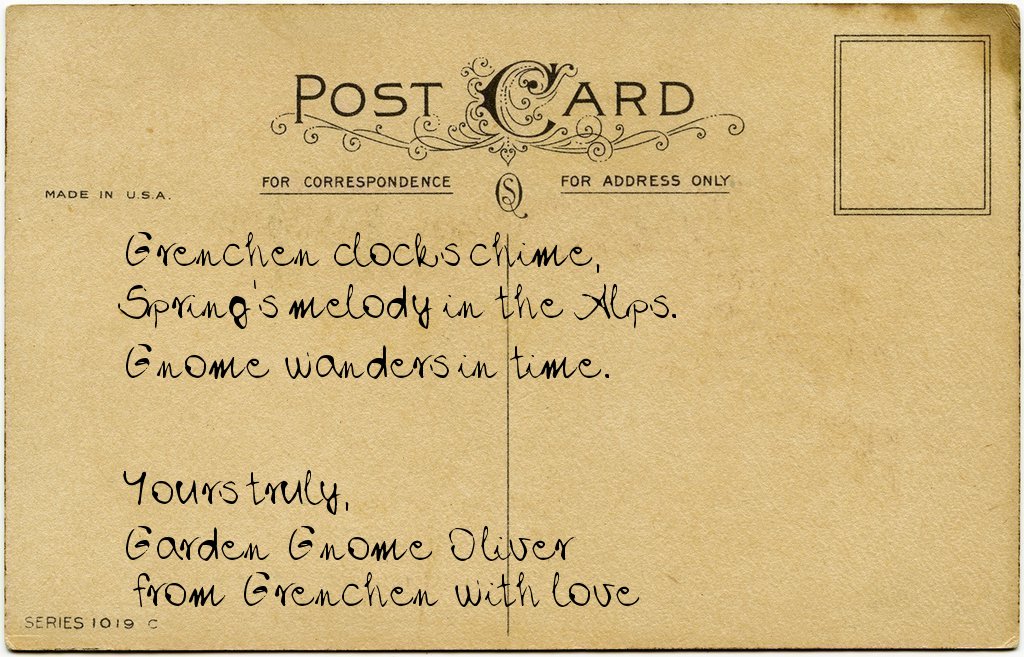 POST CARD
FOR CORRESPONDENCE
FOR ADDRESS ONLY
MADE IN U.S.A.
Grenchen clocks chime,
Spring's melody in the Alps.
Gnome wanders in time.
Yours truly,
Garden Gnome Oliver
from Grenchen with love
SERIES 1019 C